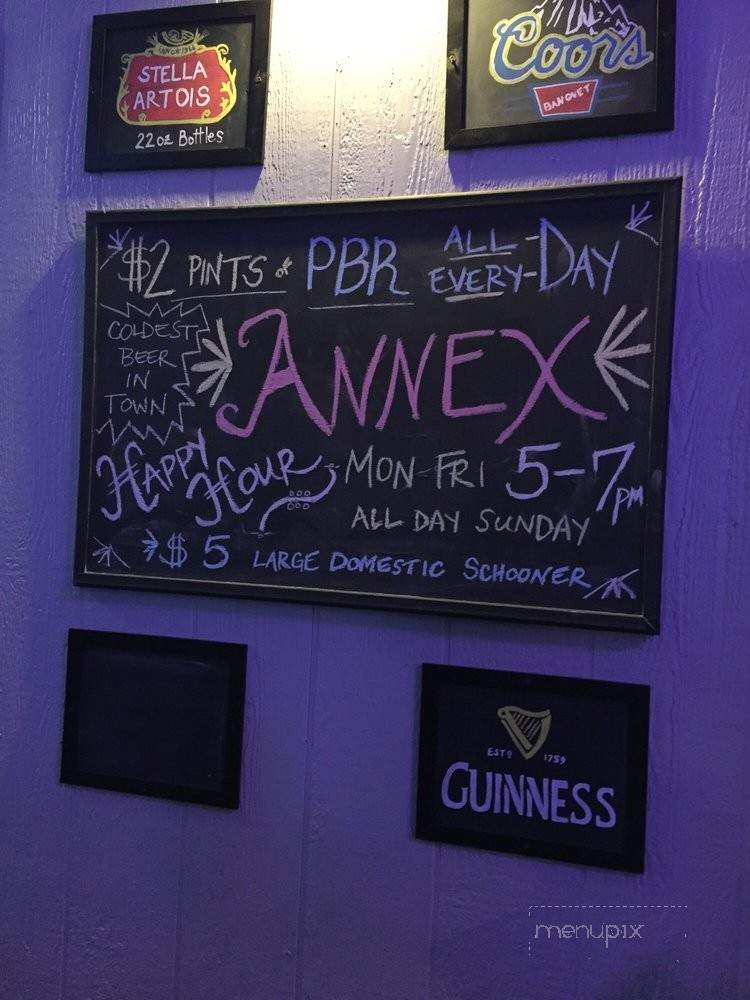 STELLA
ARTOIS
22oz Bottles
Coors
BANQUET
$2 PINTS of PBR ALL EVERY-DAY
COLDEST
BEER
IN
TOWN
ANNEX
HAPPY HOUR MON-FRI 5-7PM
ALL DAY SUNDAY
$5 LARGE DOMESTIC SCHOONER
ESTD 1759
GUINNESS
menupix